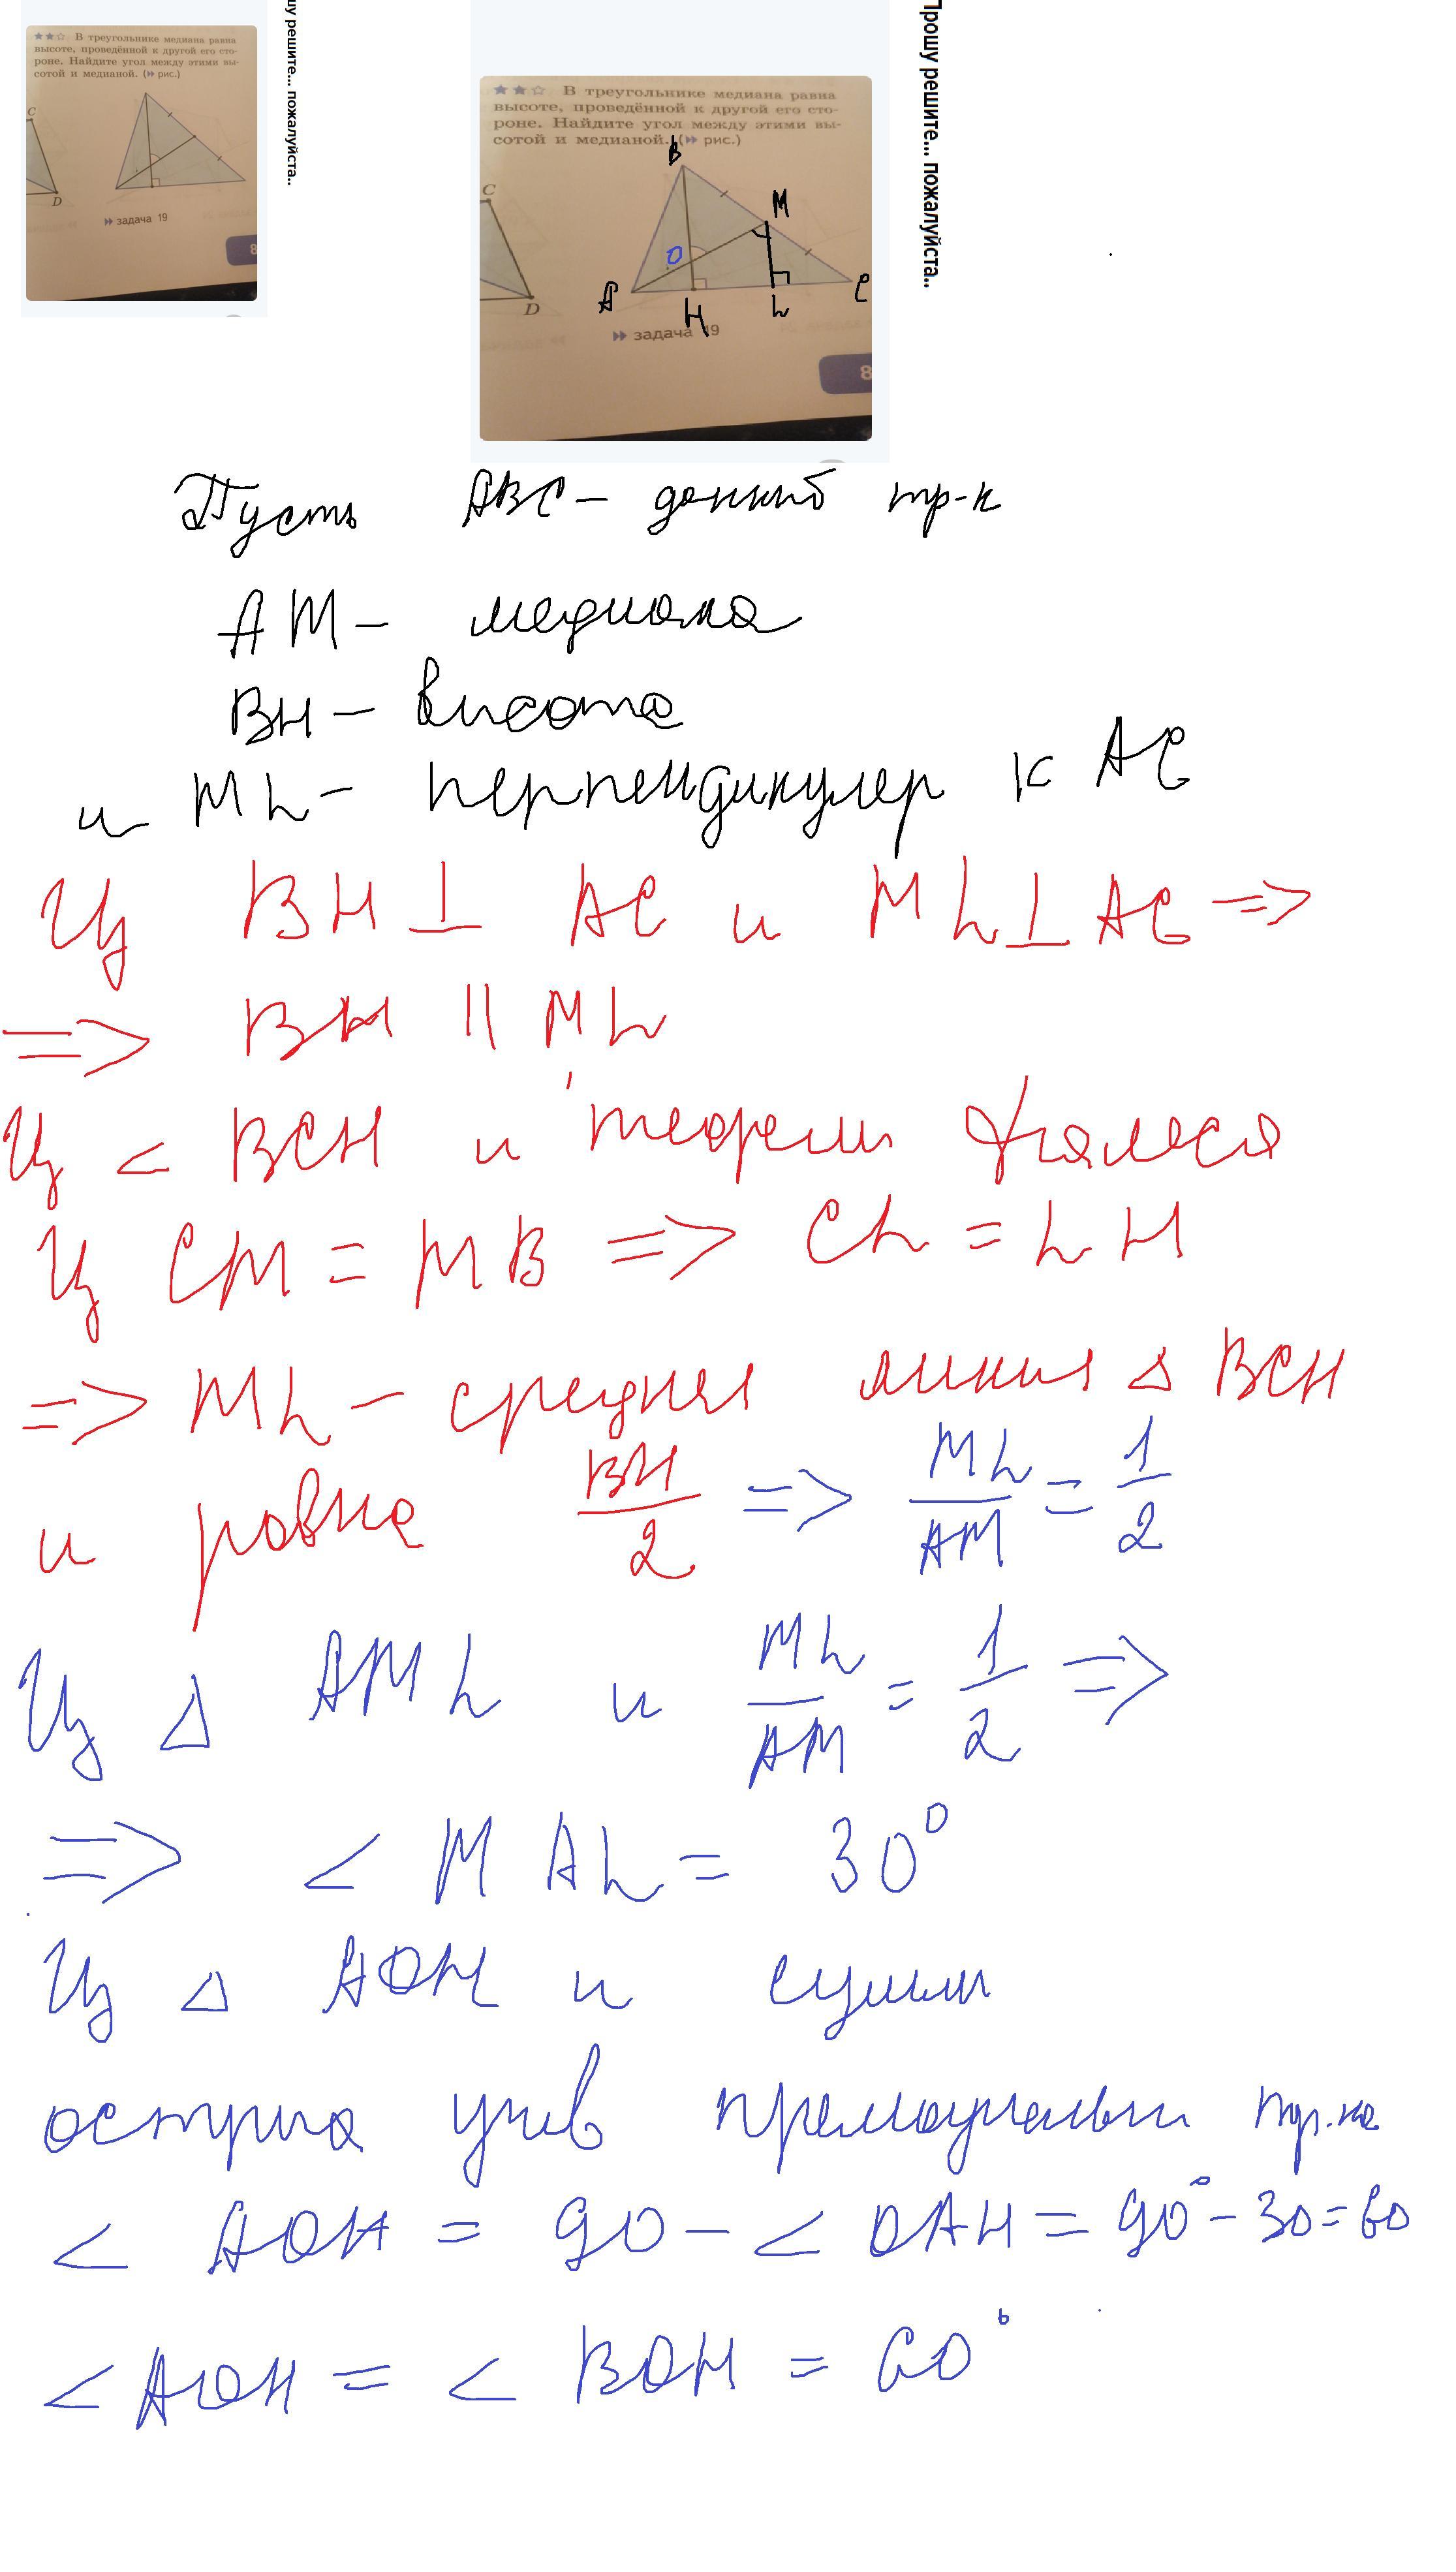 ★★☆ В треугольнике медиана равна
высоте, проведённой к другой его сто-
роне. Найдите угол между этими вы-
сотой и медианой. (▸▸ рис.)
C
D
▸▸ задача 19
8
шу решите... пожалуйста..
★★☆ В треугольнике медиана равна
высоте, проведённой к другой его сто-
роне. Найдите угол между этими вы-
сотой и медианой. (▸▸ рис.)
B
C
M
O
A
H
L
C
D
▸▸ задача 19
8
Прошу решите... пожалуйста..
Пусть ABC – данний тр-к
AM – медиана
BH – висота
и ML – перпендикуляр к AC
Из BH ⊥ AC и ML ⊥ AC =>
=> BH || ML
Из < BCH и теореми Фалеса
Из CM = MB => CL = LH
=> ML – средняя линия Δ BCH
и равна BH/2 => ML/AM = 1/2
Из Δ AML и ML/AM = 1/2 =>
=> < MAL = 30°
Из Δ AOH и сумми
острих углов прямоугольн тр-ка
< AOH = 90 – < OAH = 90° – 30 = 60
< AOH = < BOM = 60°